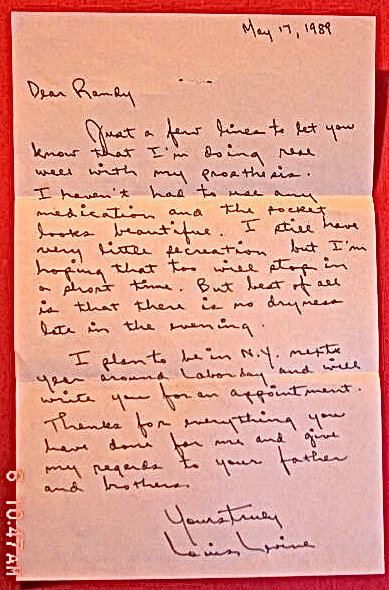 May 17, 1989
Dear Randy
Just a few lines to let you
know that I'm doing real
well with my prosthesis.
I haven't had to use any
medication and the socket
looks beautiful. I still have
very little secreation but I'm
hoping that too will stop in
a short time. But best of all
is that there is no dryness
late in the evening.
I plan to be in N.Y. next
year around Laborday and will
write you for an appointment.
Thanks for everything you
have done for me and give
my regards to your father
and brothers.
Yours truly
Louis Levine
6 10:47 AM